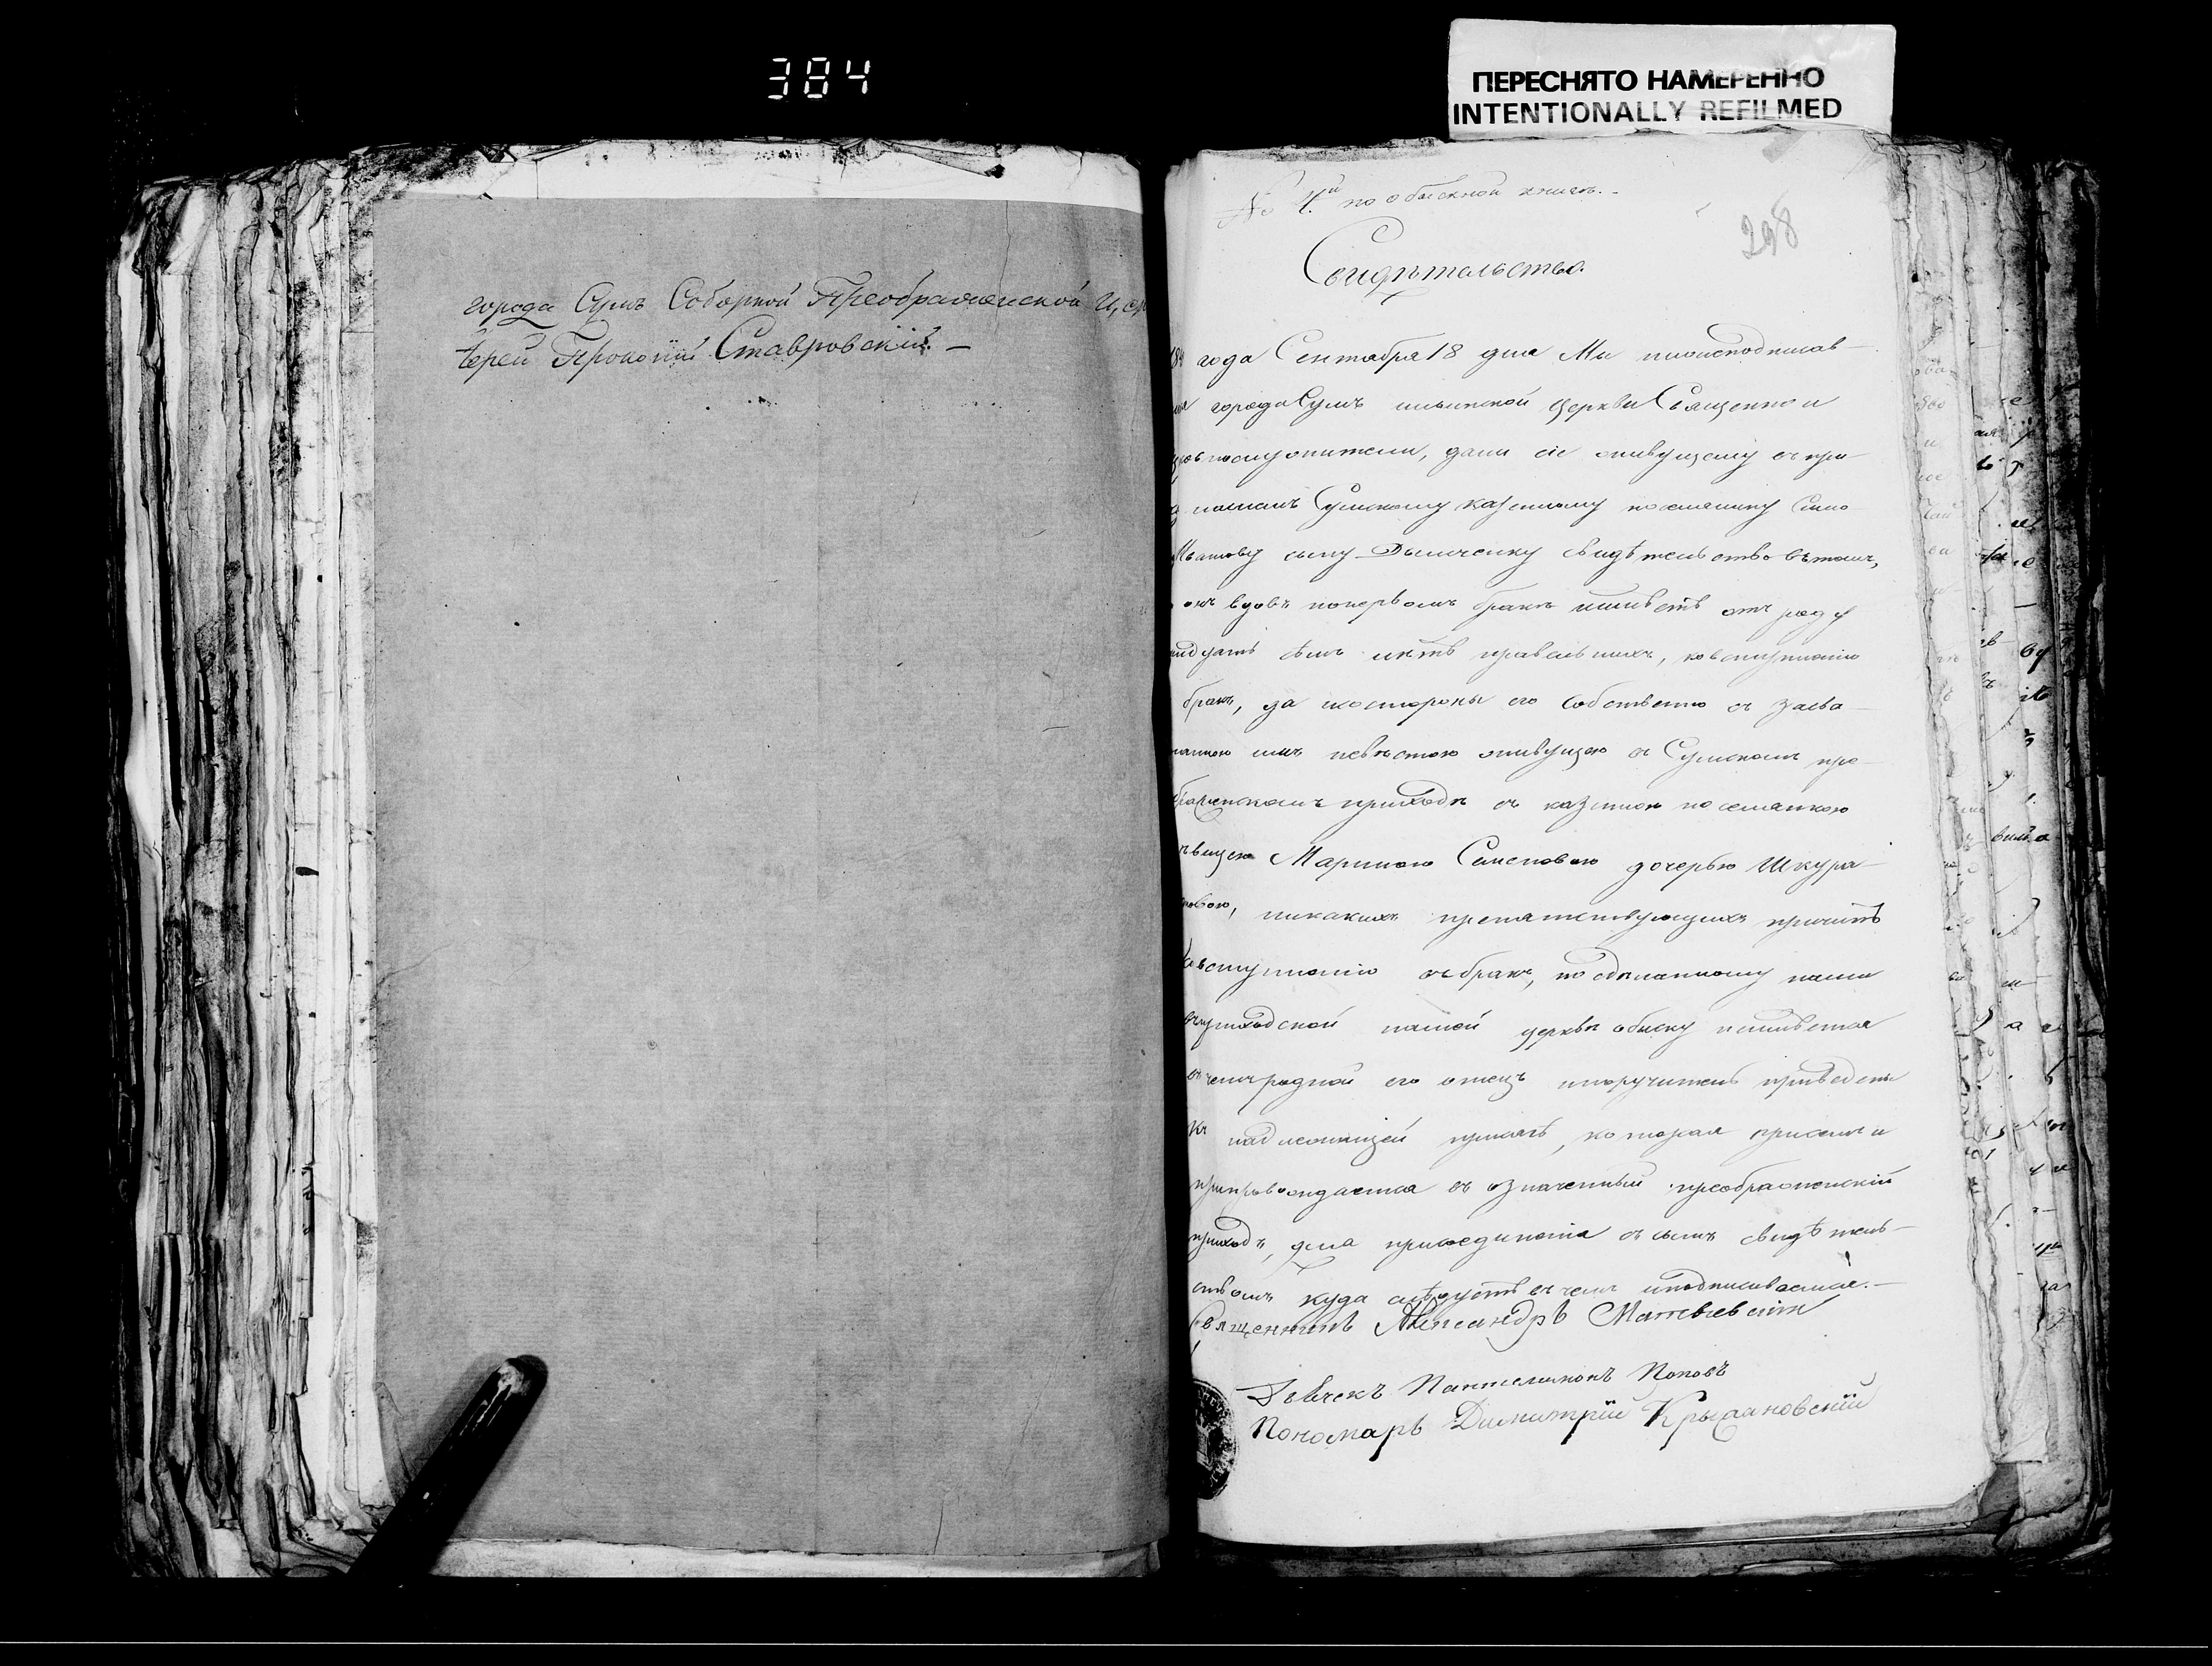 384
ПЕРЕСНЯТО НАМЕРЕННО
INTENTIONALLY REFILMED
города Сумъ Соборной Преображенской Цер
Іерей Прокопій Ставровскій. –
№ 4.й по обыскной книгѣ. –
298
Свидѣтельство.
года Сентября 18 дня Мы нижеподписав–
города Сумъ церкви Священно и
дали сіе живущему въ при–
нашемъ Сумскому казенному поселянину
сыну Дьяченку свидѣтельство въ томъ,
онъ вдовъ по первомъ бракѣ имѣетъ отъ роду
лѣтъ ко вступленію
бракъ, да и со стороны его собственно съ засва–
имъ невѣстою живущею въ Сумскомъ пре–
приходѣ съ казенною поселянкою
Мариною Семеновою дочерью Шкура–
никакихъ препятствующихъ причинъ
ко вступленію въ бракъ, по сдѣланному нами
въ приходской нашей церкви обыску неимѣется
въ чемъ родной его отецъ и поручители приведены
къ надлежащей присягѣ, которая при семъ и
препровождается въ означенный преображенскій
приходъ, для присоединенія съ симъ свидѣтель–
ствомъ куда слѣдуетъ въ чемъ и подписываемся. –
Священникъ Александръ Матвѣевскій
Дьячекъ Пантелимонъ Поповъ
Пономарь Димитрій Крыжановскій